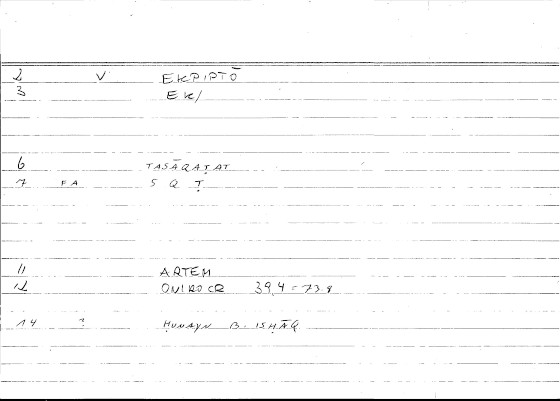 2 V EKPIPTŌ
3 EK/
6 TASĀQAṬAT
7 FA S Q Ṭ
11 ARTEM
12 ONIROCR 39,4 = 73 8
14 ? ḤUNAYN B. ISḤĀQ